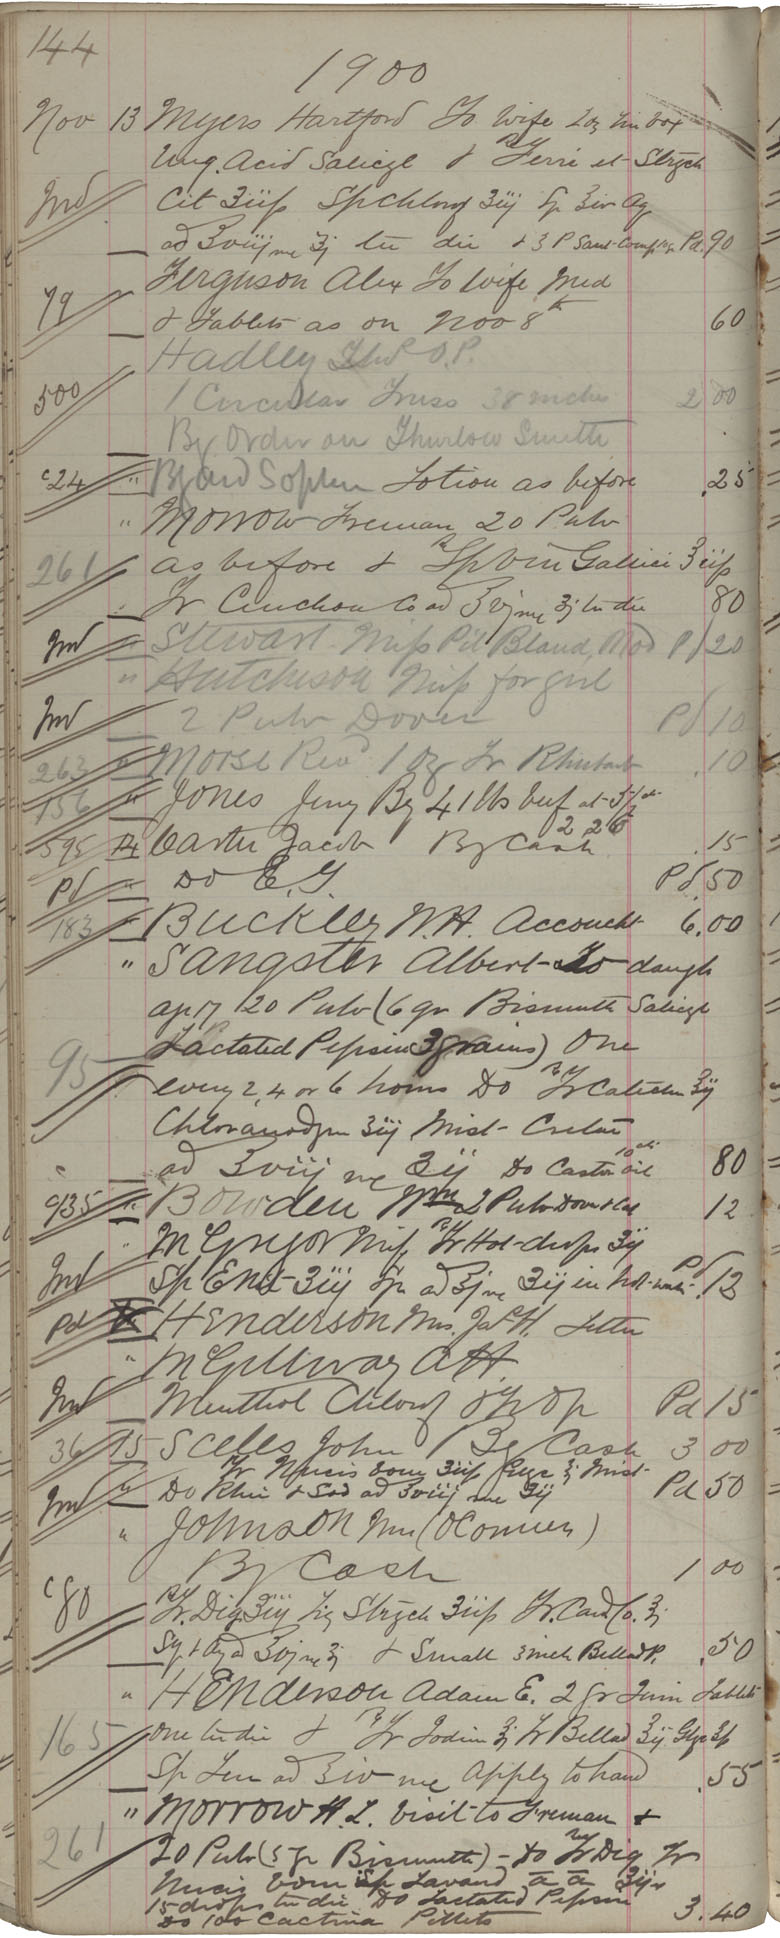 144
1900
Nov 13 Myers Hartford To wife 2oz tin box
Ung. Acid Salicyl & Rx Ferri et Strych
Ind Cit ʒiiss Sp Chlorof ʒiij Sp ʒiv Aq
ad ℥viij me ʒj ter die & 3 P Pd. 90
Ferguson Alex To wife Med
79 & Tablets as on Nov 8th 60
Hadley O.P.
500 1 Circular Truss 38 inches 2 00
By Order on Thurlow Smith
c24 " Byard Sophia Lotion as before .25
" Morrow Freman 20 Pulv
261 as before & Rx Sp Vini Gallici ℥iiss
Tr Cinchon Co ad ℥vj me ʒj ter die 80
Ind " Stewart Miss Pil Blaud, Mod Pd 20
" Hutchison Miss for girl
Ind 2 Pulv Dover Pd 10
263 " Morse Revd 1 oz Tr Rhubarb .10
156 " Jones Jerry By 41 lbs beef at 5½
2 26
595 14 Carter Jacob By Cash .15
Pd " Do E. G. Pd .50
183 " Buckley W.H. Account 6.00
" Sangster Albert To daugh
20 Pulv (6 gr Bismuth Salicyl
95 Lactated Pepsin 3 grains) One
every 2, 4 or 6 hours Do Rx Tr Catechu ʒij
Chloranodyne ʒiij Mist Cretae
ad ℥viij me ʒij Do Castor oil 80
c135 " Bowden Wm 2 Pulv Dover & Cal 12
" McGregor Miss Rx Tr Hot drops ʒij
Ind Sp ʒiij ad ℥j me ʒij in hot water Pd .12
Pd Henderson Mrs. Jas H. Letter
" McGillivray A H
Ind Menthol Chlorof Pd 15
36 15 Scells John By Cash 3 00
Tr Nucis Vom ʒiiss Glyc ℥j Mist
Ind " Do Rhei & Sod ad ℥viij me ʒij Pd 50
" Johnson Mrs (O'Conners)
By Cash 1 00
c80 Rx Tr. Dig ʒiij Liq Strych ʒiiss Tr. Card Co. ℥j
Syr & Aq ad ℥vj me ʒj & Small 3 inch Bellad P. .50
" Henderson Adam E. 2 gr Tablets
165 one ter die & Rx Tr Iodine ℥j Tr Bellad ʒij Glyc
ad ℥iv me Apply to hand .55
" Morrow H. L. Visit to Freman &
261 20 Pulv (5 gr Bismuth) - Do Rx Tr Dig Tr
Nucis Vom Sp Lavand āā ʒij
15 drops ter die Do Lactated Pepsin
Do 100 Cactina Pillets 3.40